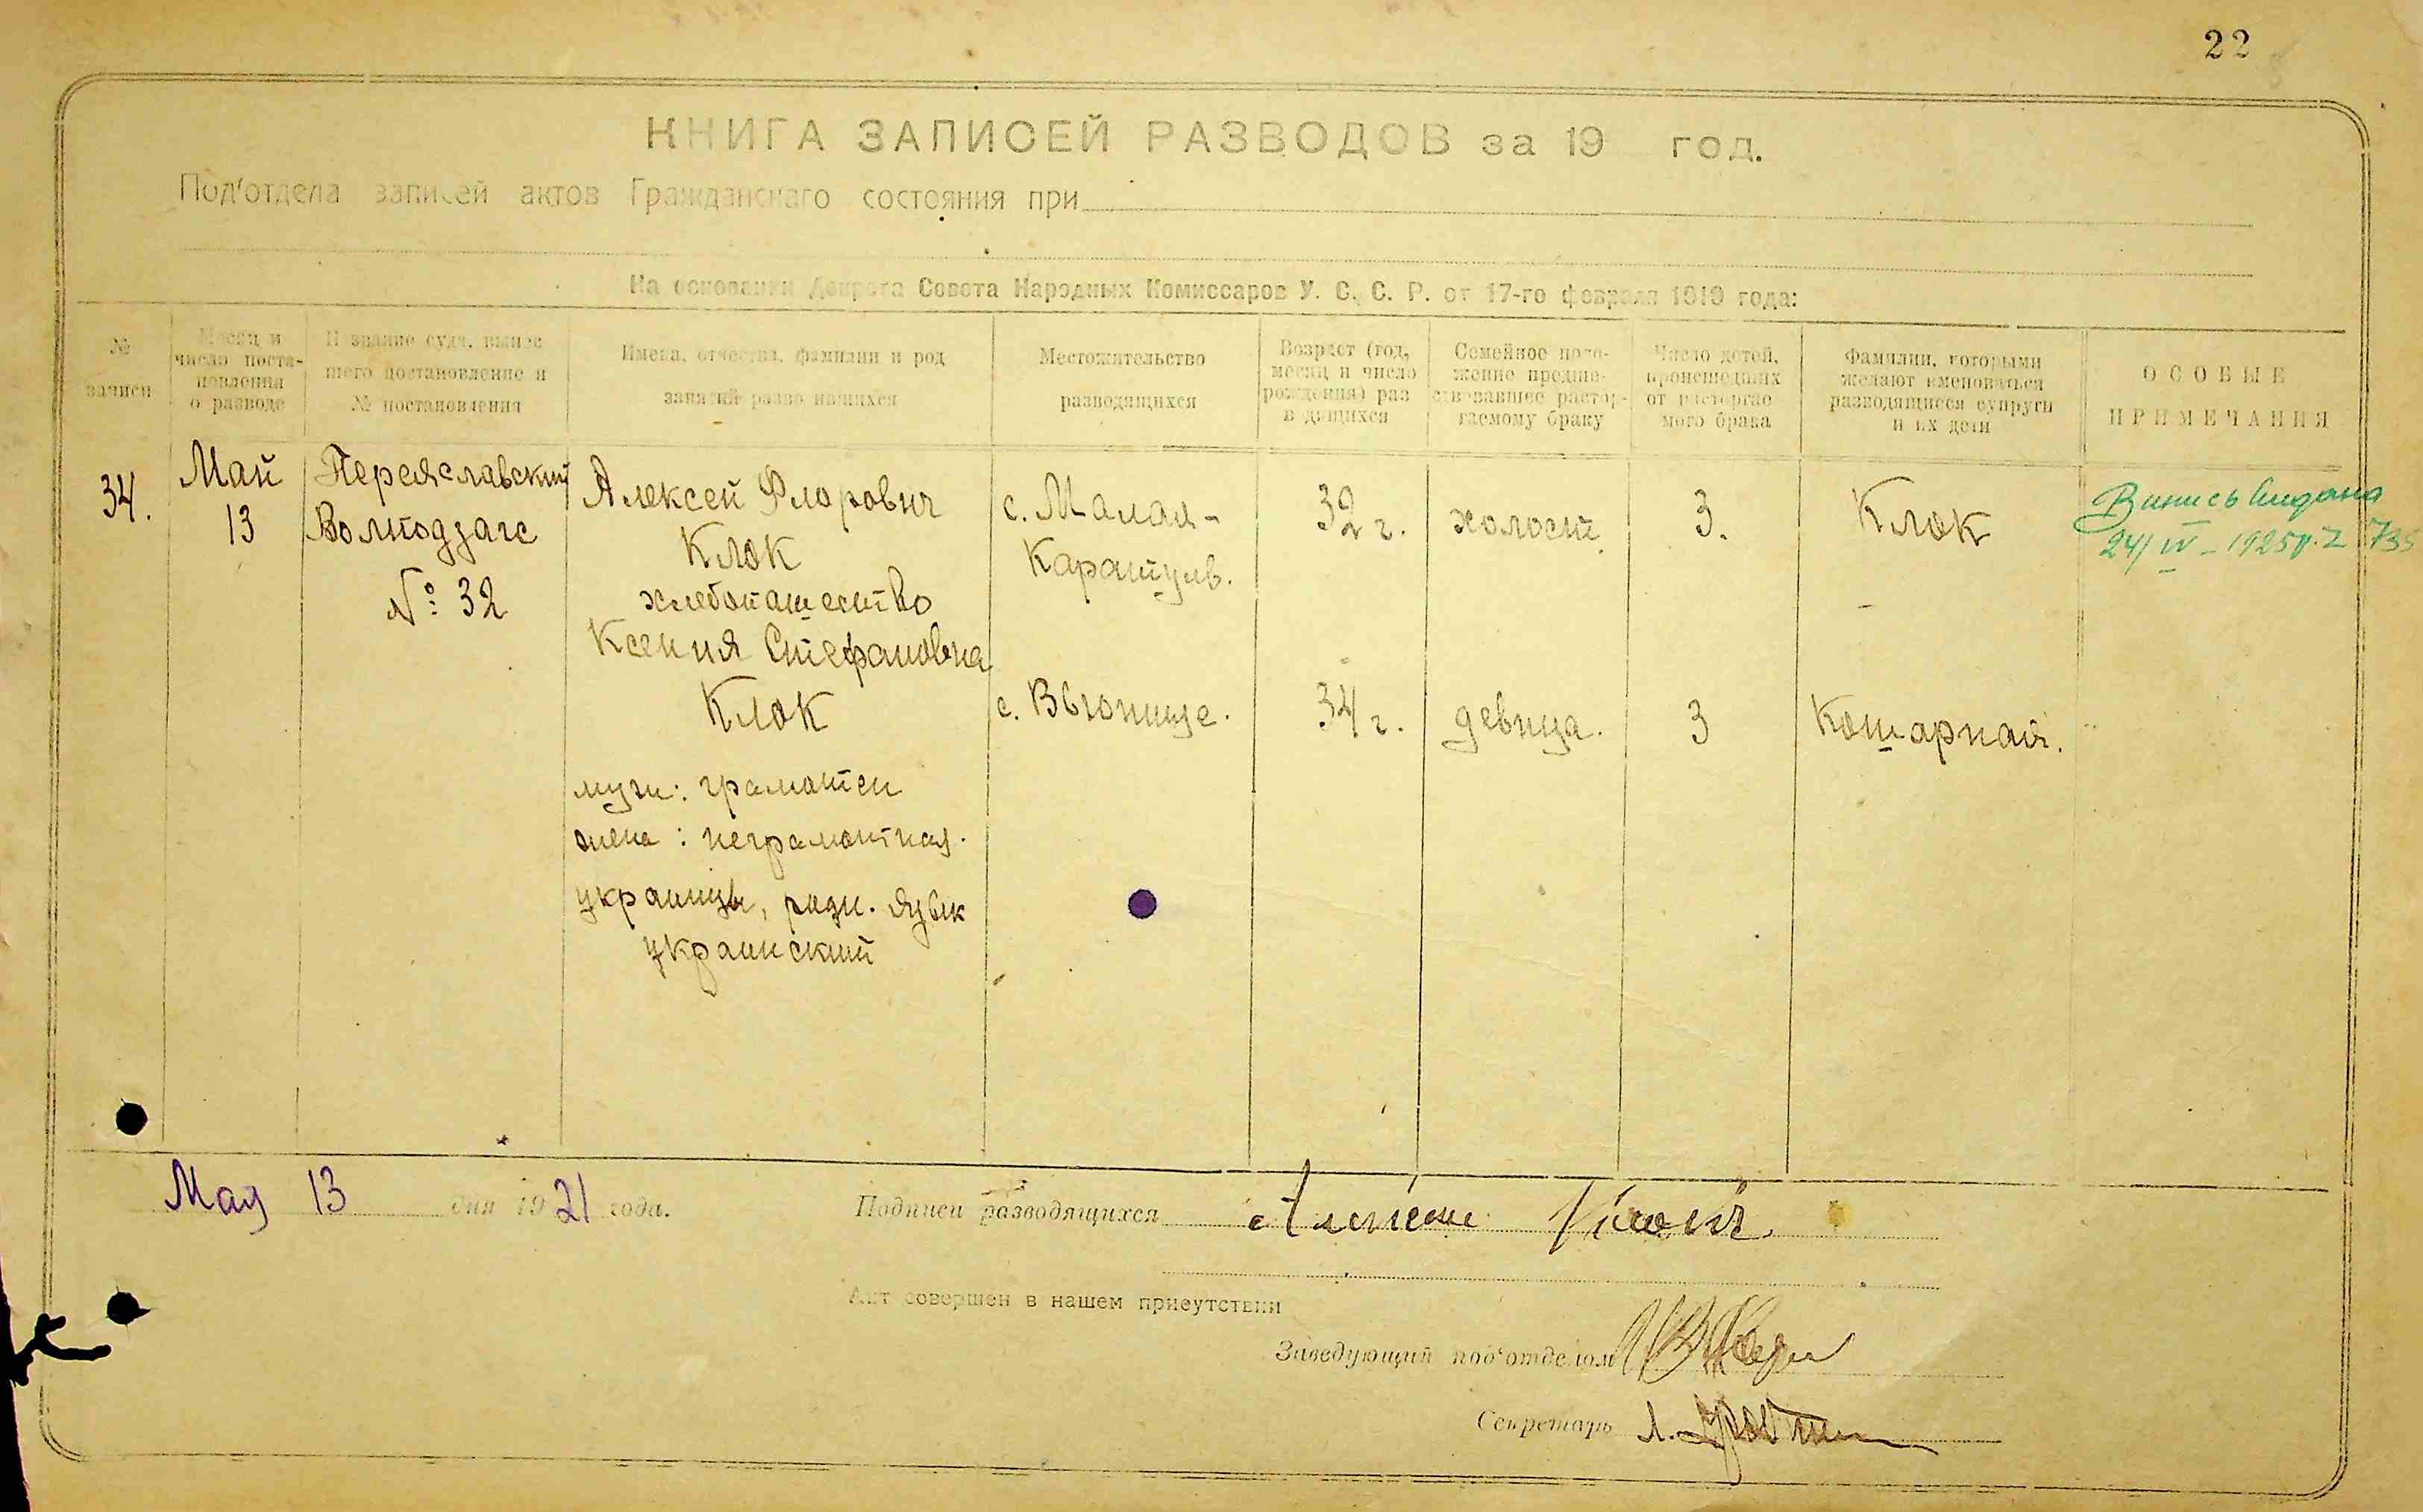 22
КНИГА ЗАПИСЕЙ РАЗВОДОВ за 19 год.
Под'отдела записей актов Гражданскаго состояния при
На основании Декрета Совета Народных Комиссаров У. С. С. Р. от 17-го февраля 1919 года:
№ записи
Месяц и число поста-новления о разводе
Название суда, вынес шего постановление и № постановления
Имена, отчества, фамилии и род занятий разво ившихся
Местожительство разводящихся
Возраст (год, месяц и число рождения) раз в дящихся
Семейное поло-жение предше-ствовавшее растор-гаемому браку
Число детей, происшедших от расторгае мого брака
Фамилии, которыми желают именоваться разводящиеся супруги и их дети
ОСОБЫЕ ПРИМЕЧАНИЯ
34.
Май
13
Переяславский
Волподзагс
№ 32
Алексей Флорович
Клок
хлебопашество
Ксения Стефановна
Клок
муж: грамотен
жена: неграмотная.
украинцы, родн. язык
украинский
с. Малая-
Каратуль.
с. Вьюнище.
32 г.
34 г.
холост
девица.
3.
3
Клок
Кошарная.
Випись видана
24/IV-1925р. 735
Мая 13 дня 1921 года.
Подписи разводящихся Алексей Клокъ.
Акт совершен в нашем присутствии
Заведующий под'отделом
Секретарь Л.